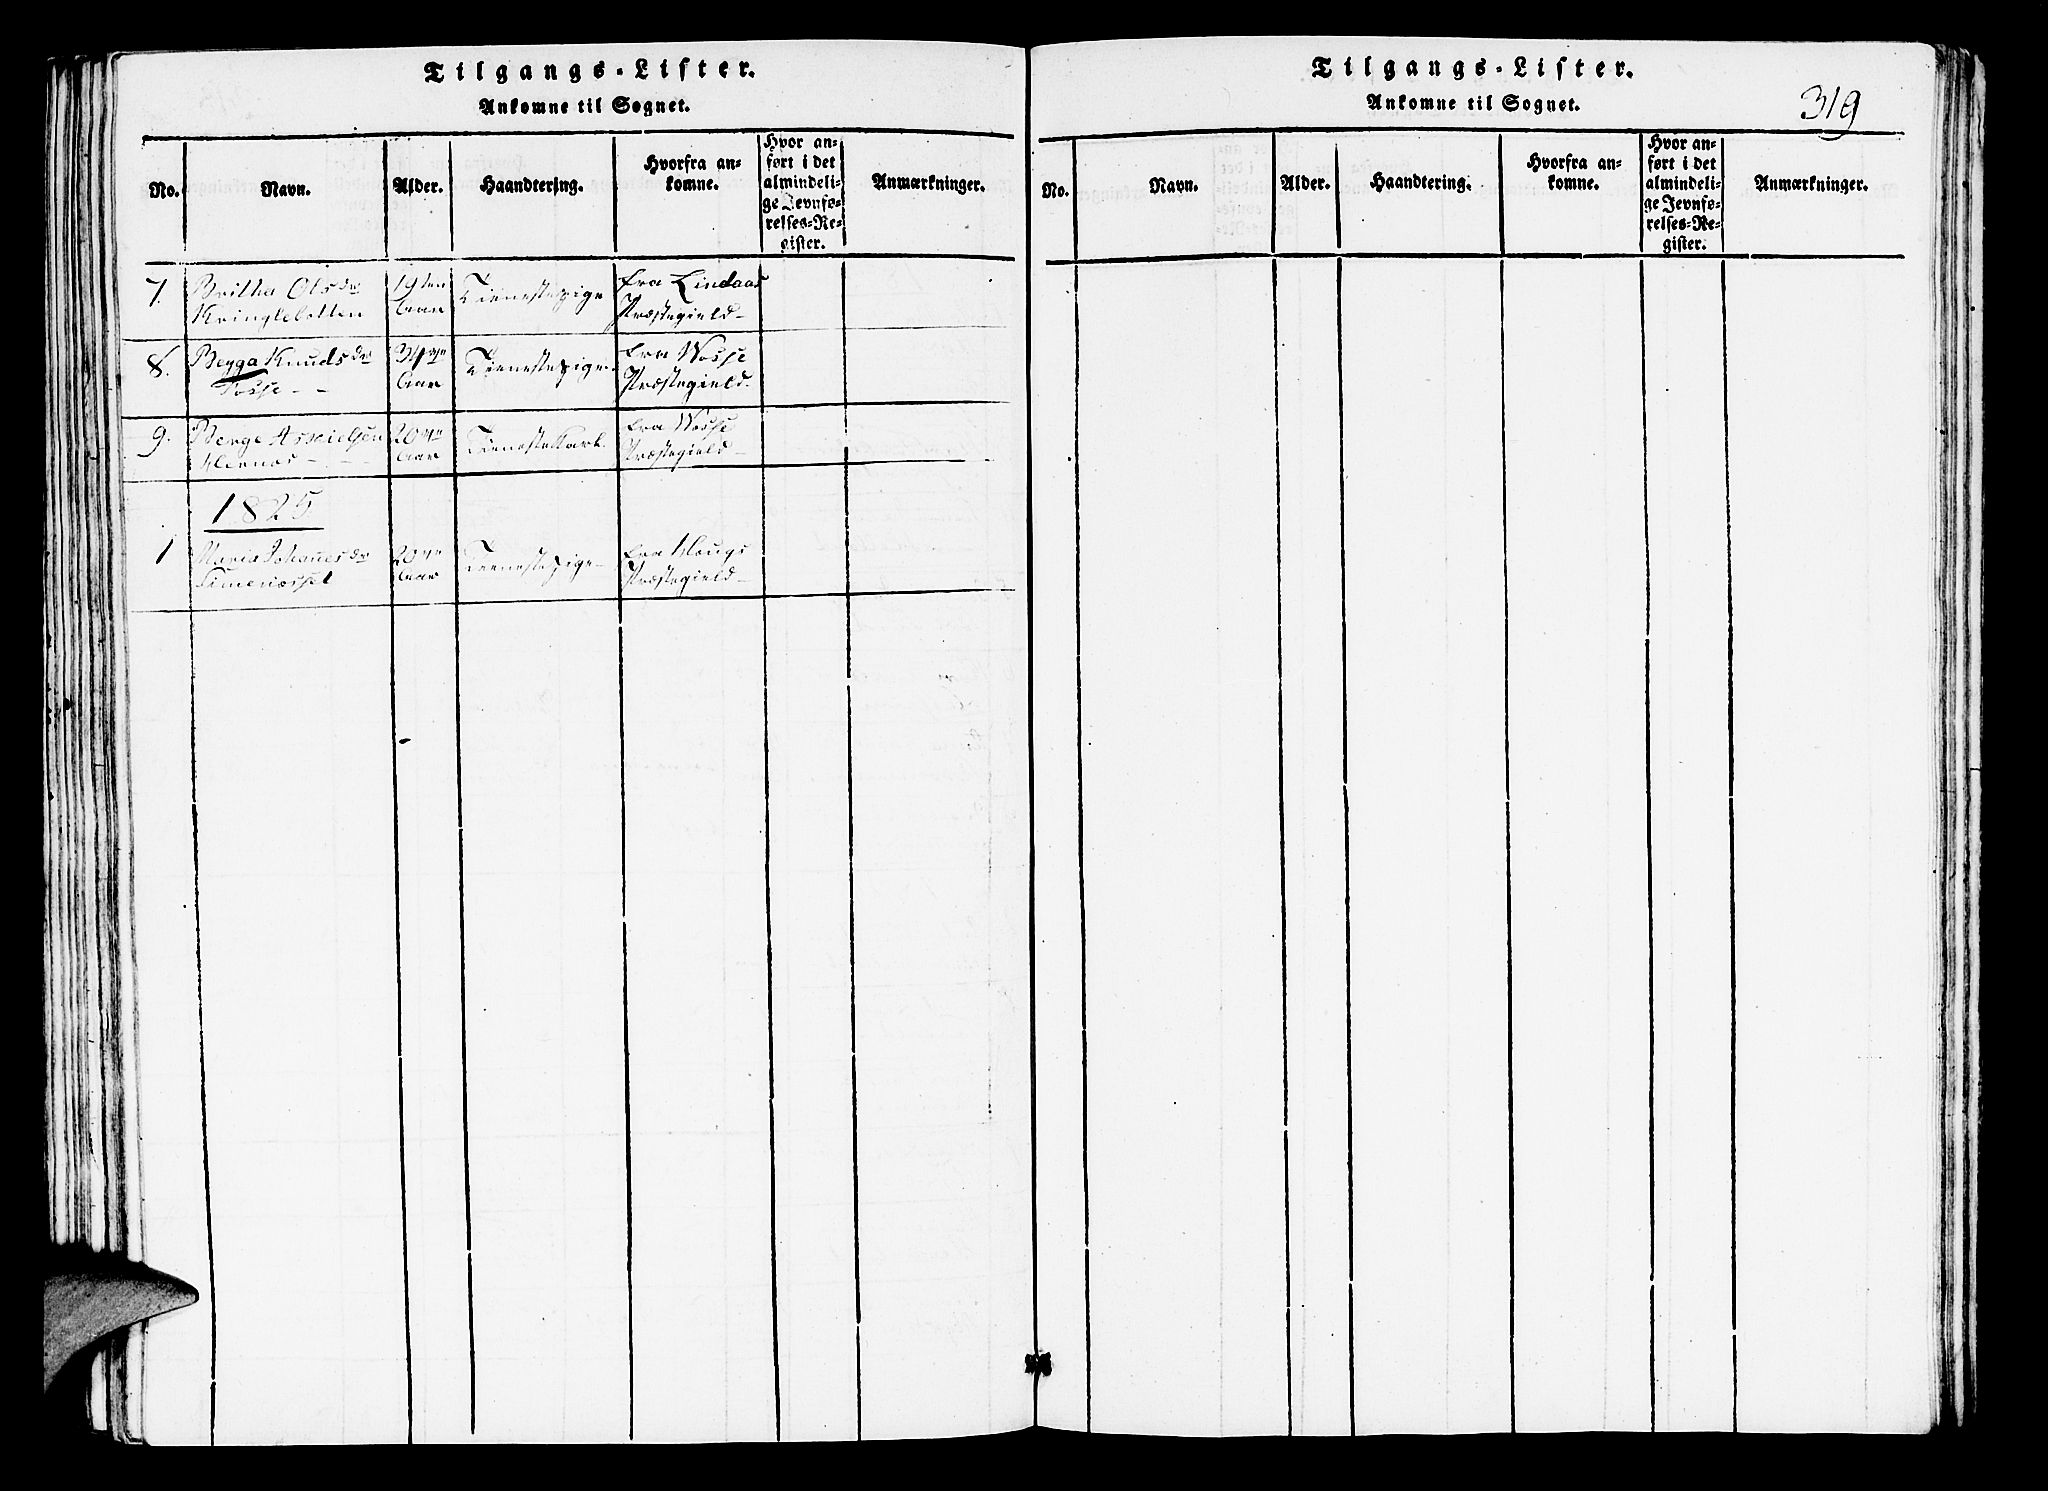 Tilgangs-Lister.
Ankomne til Sognet.
No.
Navn.
Alder.
Haandtering.
Hvorfra an-
komne.
Hvor an-
ført i det
almindeli-
ge Jevnfø-
relses-Re-
gister.
Anmærkninger.
7.
Britha Olsdr
Kringlebotten
19ten
Aar
Tienestepige
fra Lindaas
Præstegield-
8.
Knudsdr
Vosse - -
34
Aar
Tienestepige.
fra Wosse
Præstegield.
9.
Berge
20
Aar
Tienestekarl.
fra Wosse
Præstegield-
1825
1
Maria Johanesdr
20
Aar
Tienestepige-
fra Hougs
Præstegield-
Tilgangs-Lister.
Ankomne til Sognet.
319
No.
Navn.
Alder.
Haandtering.
Hvorfra an-
komne.
Hvor an-
ført i det
almindeli-
ge Jevnfø-
relses-Re-
gister.
Anmærkninger.